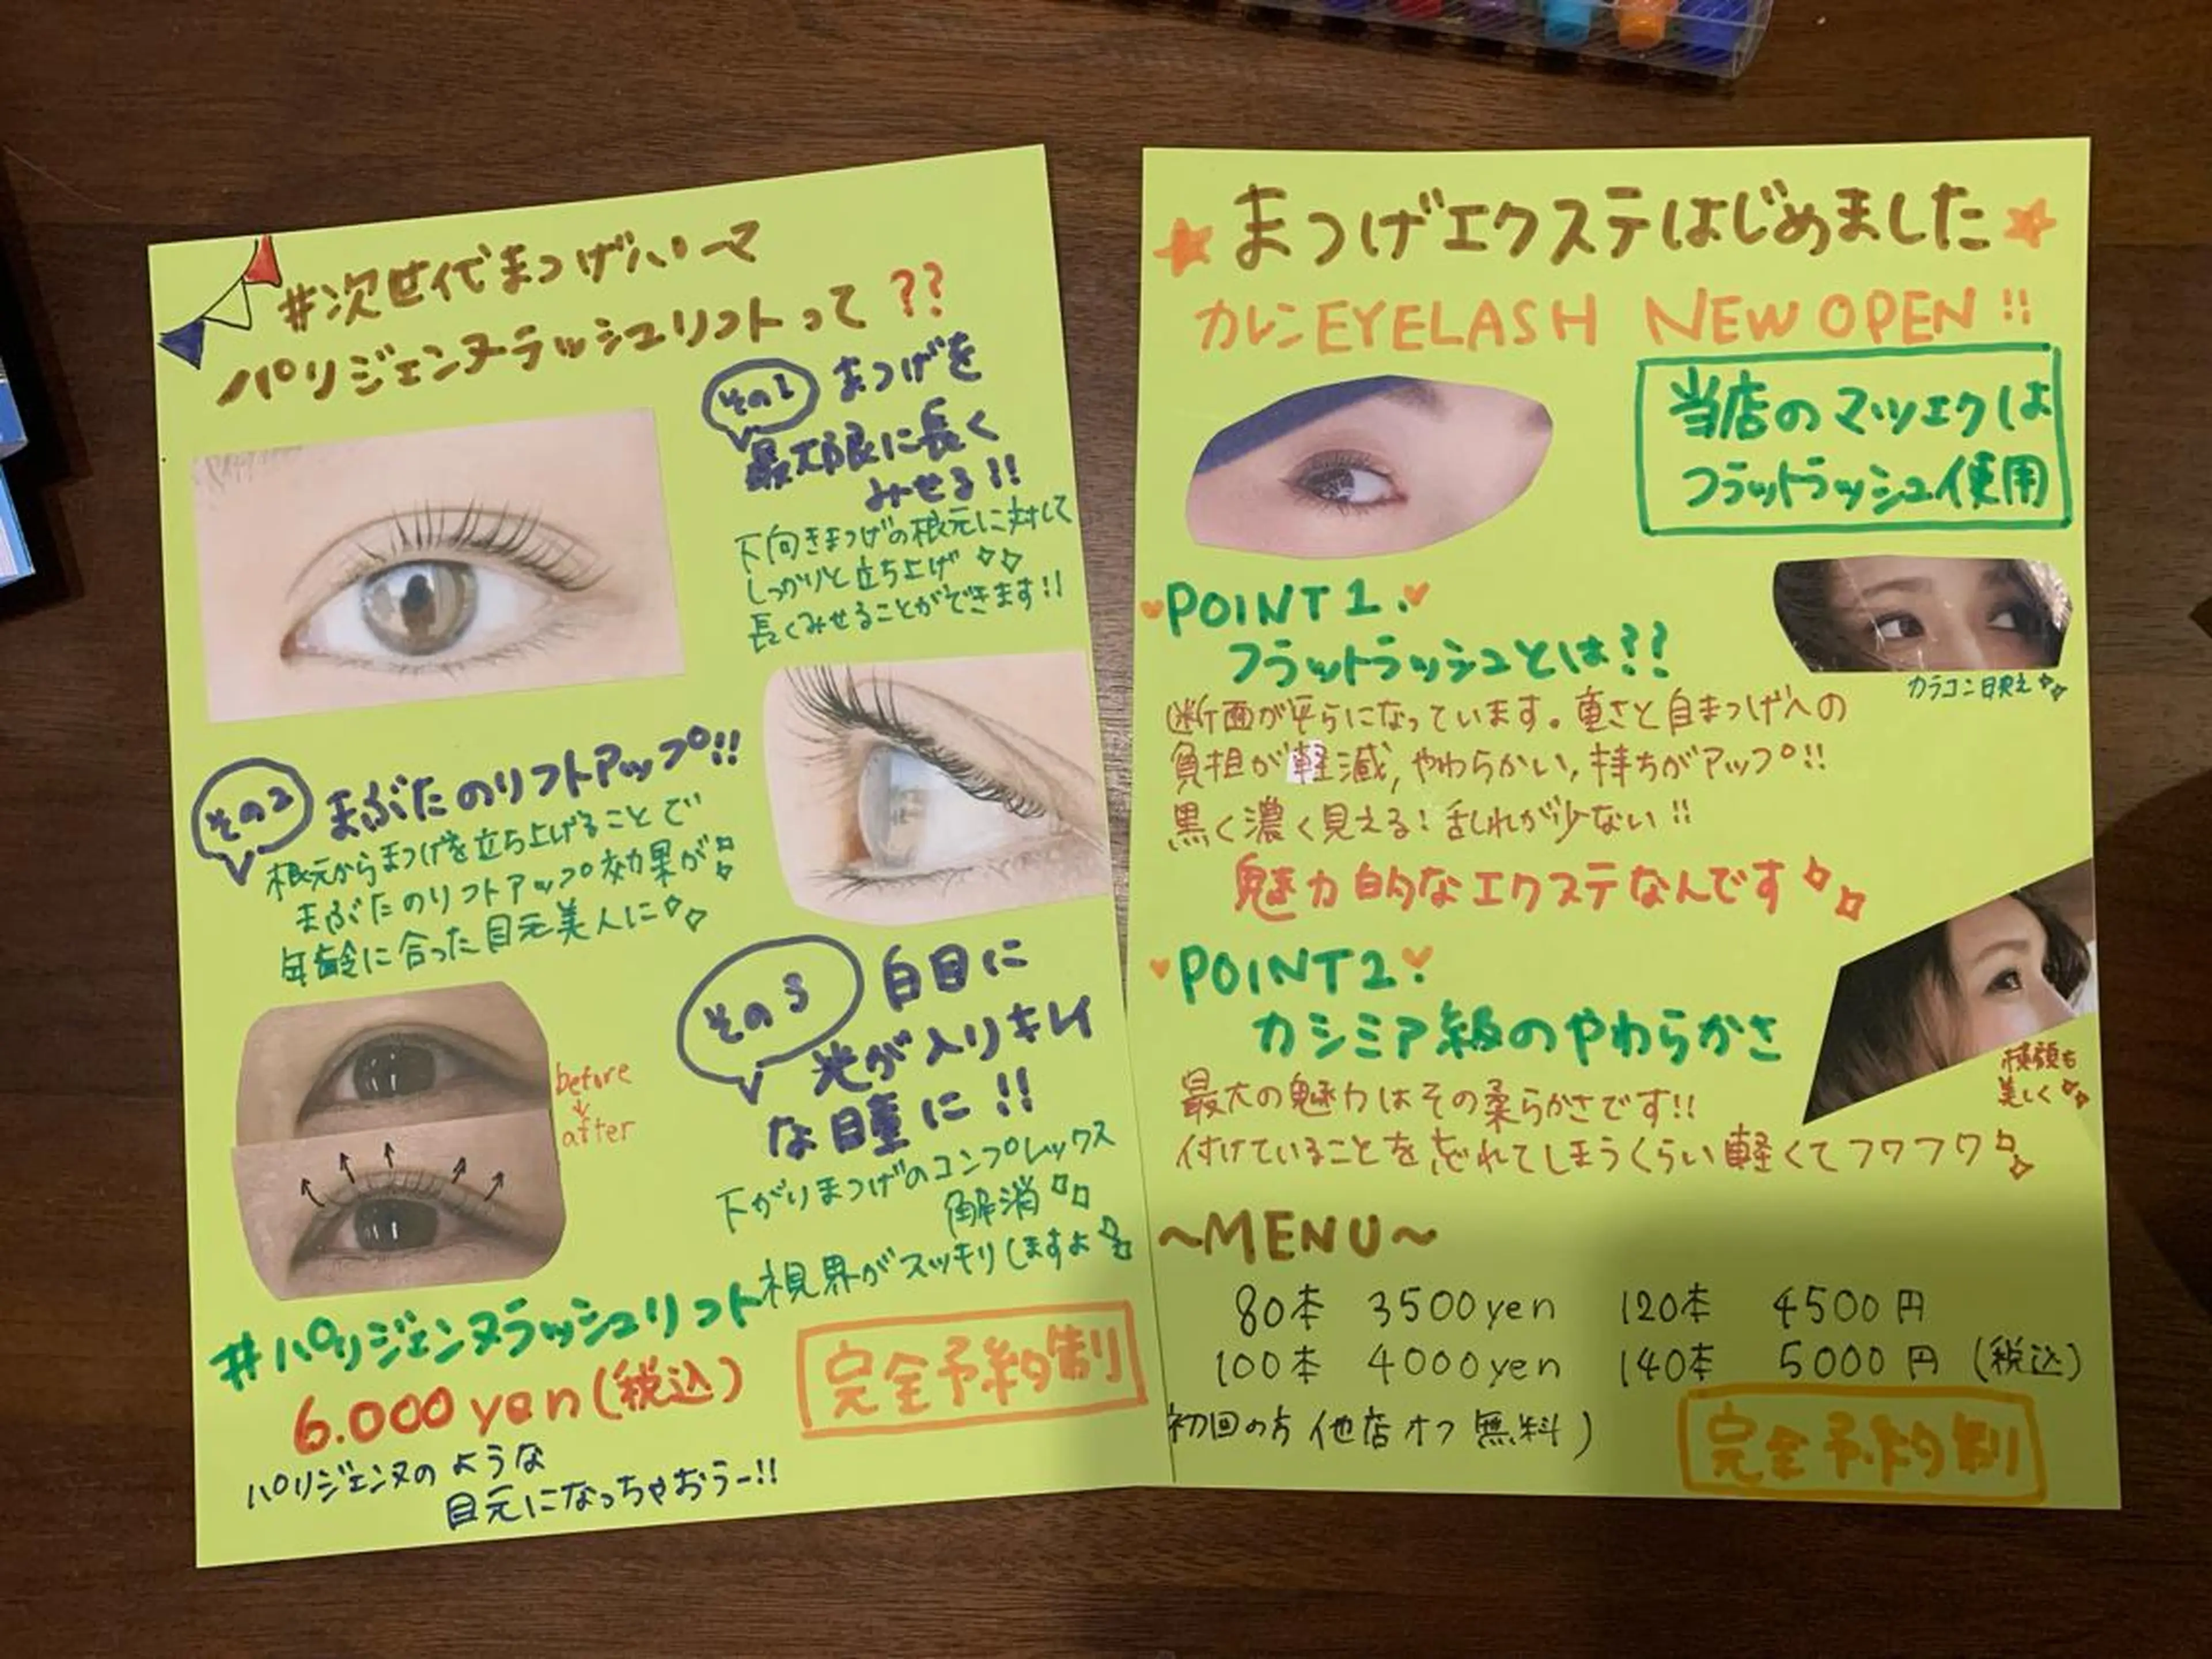 #次世代まつげパーマ
パリジェンヌラッシュリフトって??
その1 まつげを
最大限に長く
みせる!!
下向きまつげの根元に対して
しっかりと立ち上げ
長くみせることができます!!
その2 まぶたのリフトアップ!!
根元からまつげを立ち上げることで
まぶたのリフトアップ効果が
年齢に合った目元美人に
before
after
その3 白目に
光が入りキレイ
な瞳に!!
下がりまつげのコンプレックス
解消
視界がスッキリしますよ
#パリジェンヌラッシュリフト
6.000yen(税込)
完全予約制
パリジェンヌのような
目元になっちゃおうー!!
まつげエクステはじめました
カレンEYELASH NEW OPEN!!
当店のマツエクは
フラットラッシュ使用
POINT1.
フラットラッシュとは??
カラコン映え
断面が平らになっています。重さと自まつげへの
負担が軽減,やわらかい,持ちがアップ!!
黒く濃く見える!乱れが少ない!!
魅力的なエクステなんです
POINT2.
カシミア級のやわらかさ
横顔も
美しく
最大の魅力はその柔らかさです!!
付けていることを忘れてしまうくらい軽くてフワフワ
~MENU~
80本 3500yen 120本 4500円
100本 4000yen 140本 5000円 (税込)
初回の方 他店オフ 無料)
完全予約制